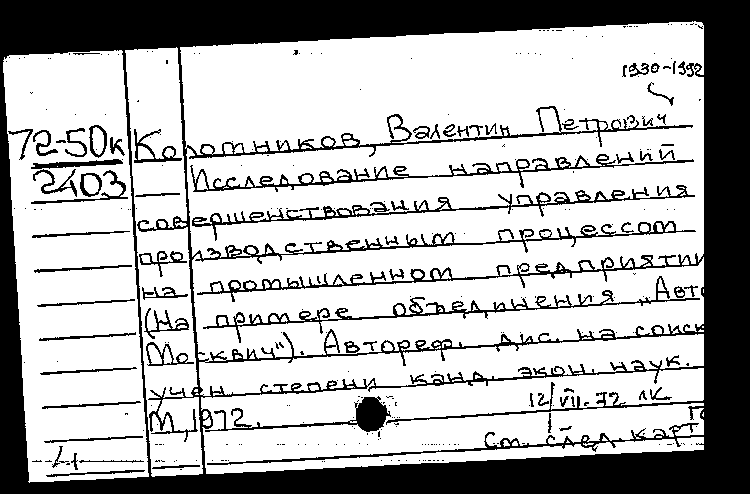 1930-1992
72-50к Коротников, Валентин Петрович
2403 Исследование направлений
совершенствования управления
производственным процессом
на промышленном предприятии
(На примере объединения „Авто
Москвич"). Автореф. дис. на соиск
учен. степени канд. экон. наук.
М, 1972.
12/VII-72 лк.
См. след. карт
4